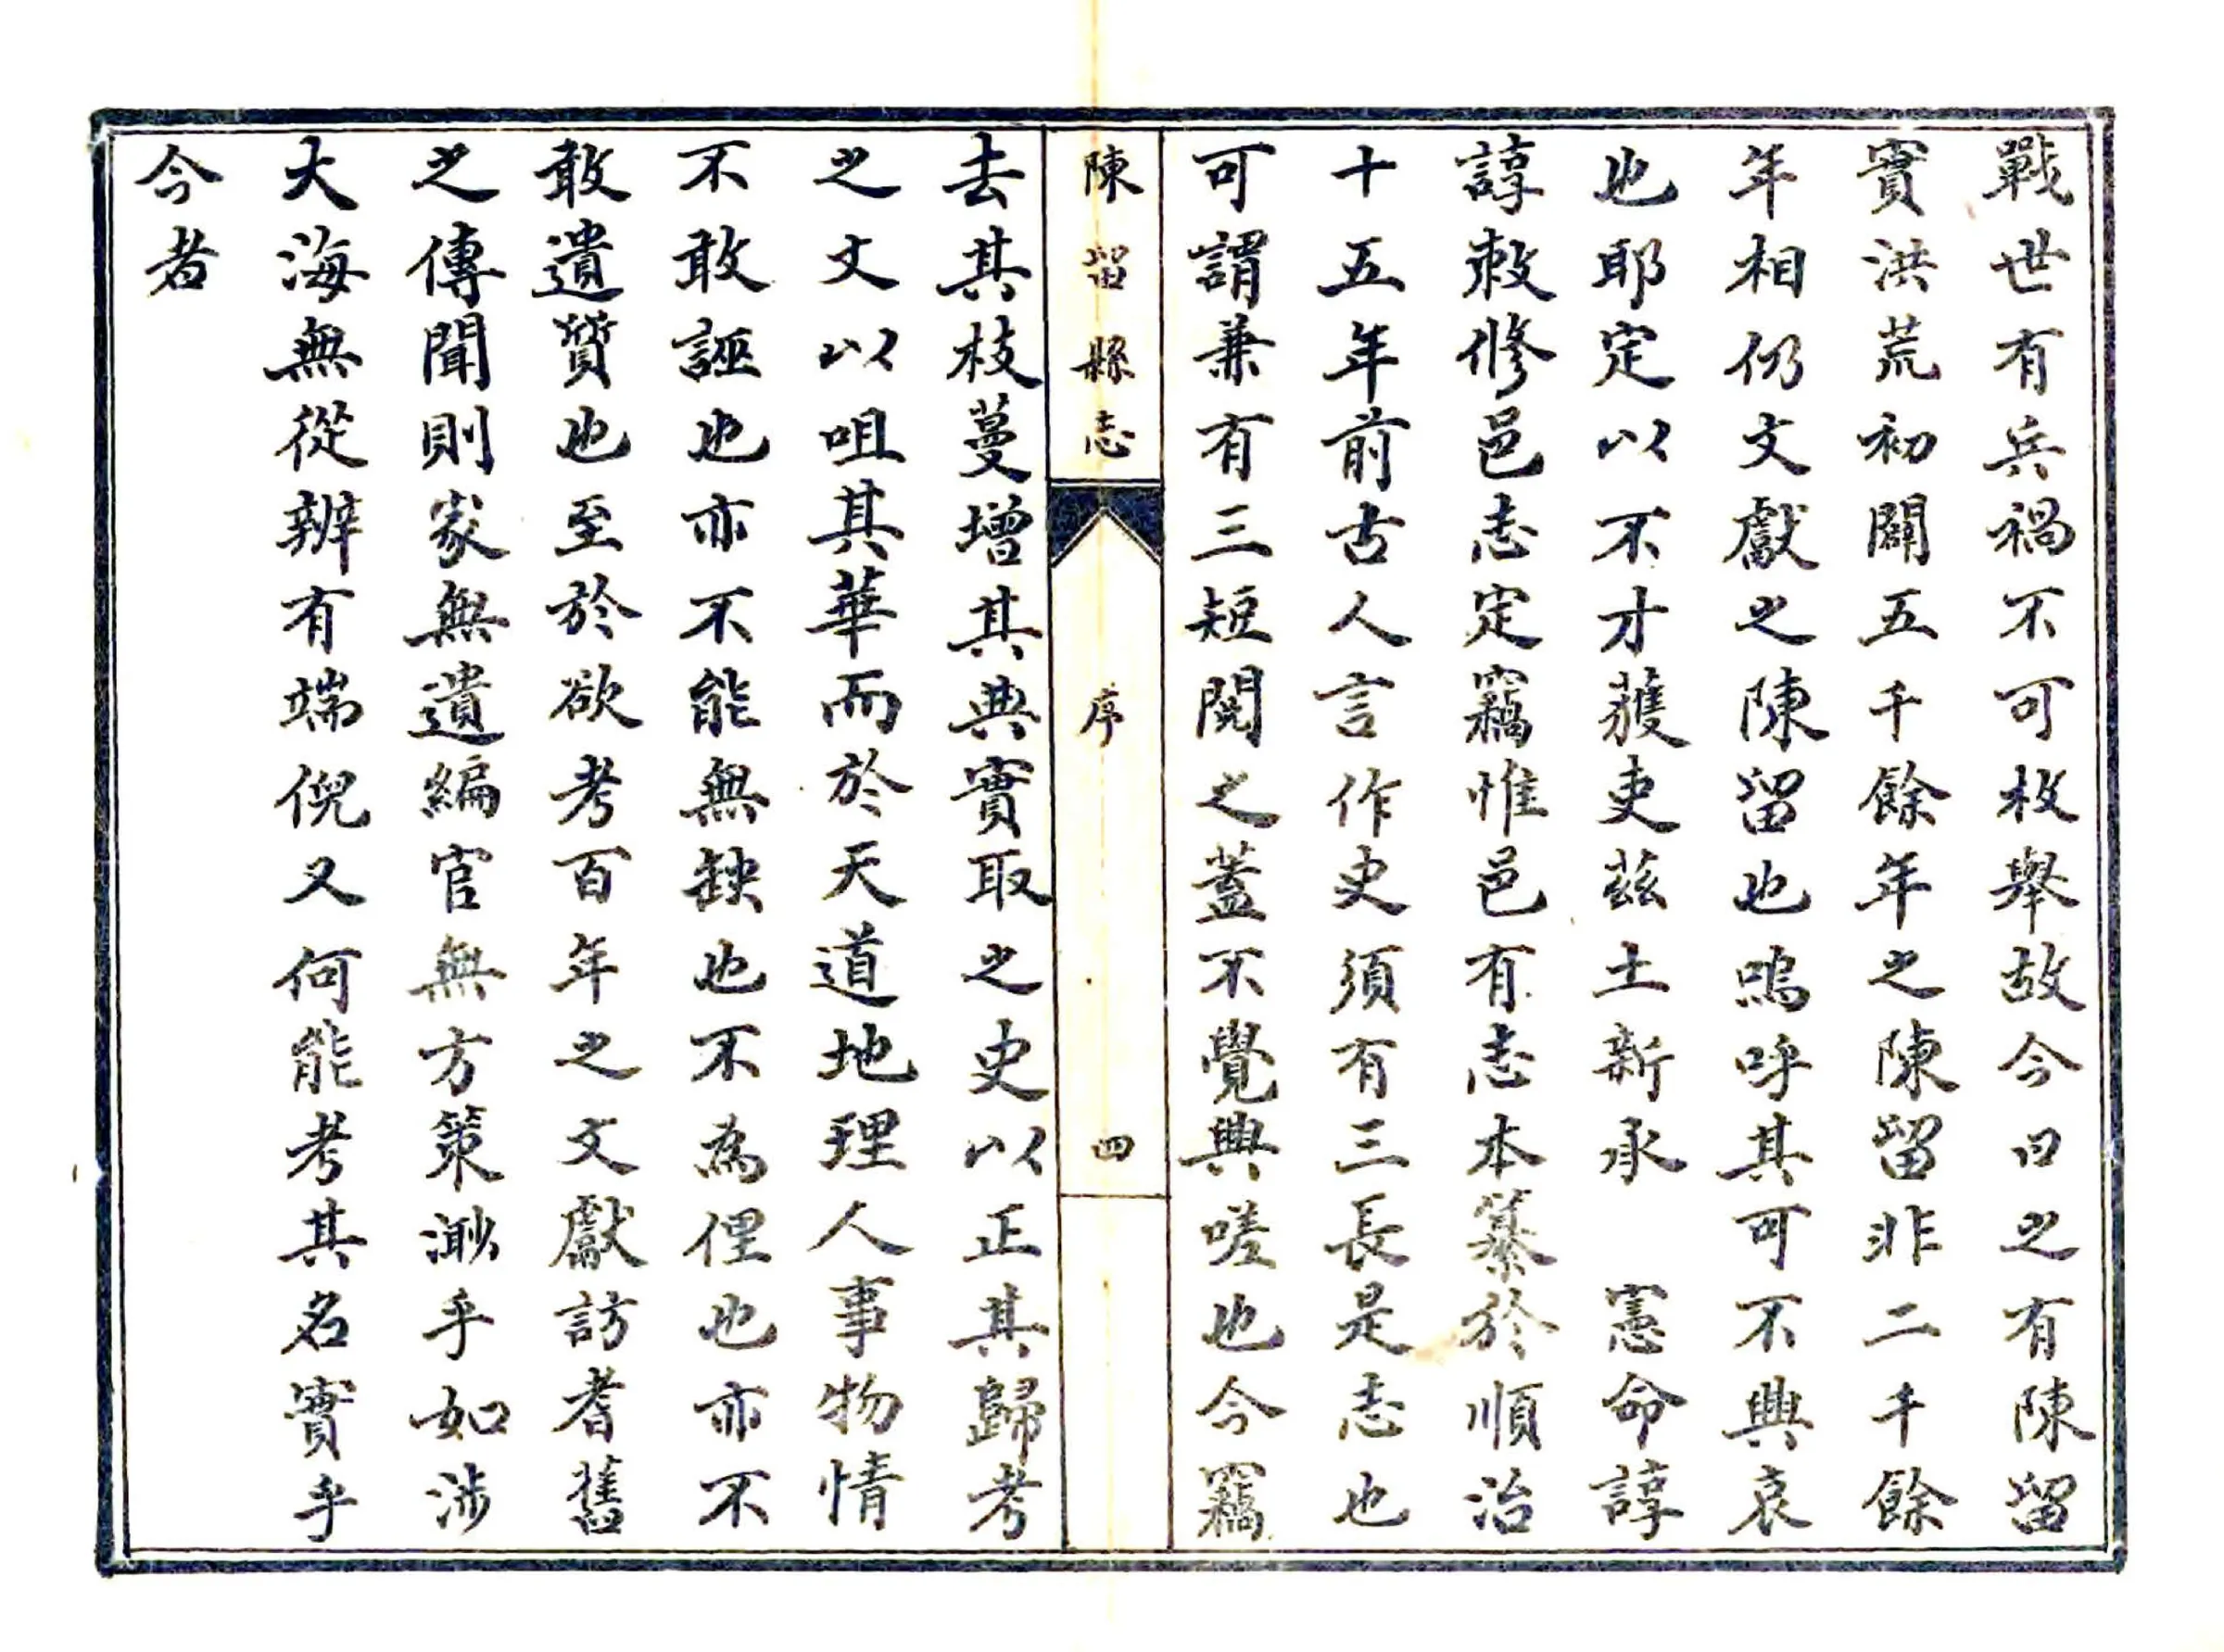 戰世有兵禍不可枚舉故今日之有陳留
實洪荒初闢五千餘年之陳留非二千餘
年相仍文獻之陳留也嗚呼其可不興哀
也耶定以不才蒦吏茲土新承　憲命諄
諄敕修邑志定竊惟邑有志本纂於順治
十五年前古人言作史須有三長是志也
可謂兼有三短閱之蓋不覺興嗟也今竊
陳留縣志
序
四
去其枝蔓增其典實取之史以正其歸考
之文以咀其華而於天道地理人事物情
不敢誣也亦不能無缺也不為俚也亦不
敢遺贊也至於欲考百年之文獻訪耆舊
之傳聞則家無遺編官無方策渺乎如涉
大海無從辨有端倪又何能考其名實乎
今者